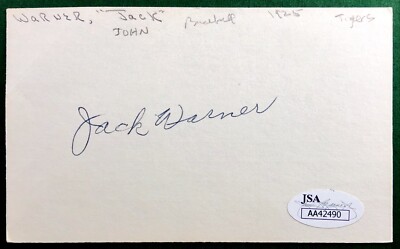 WARNER, "JACK" Baseball 1925 Tigers
JOHN
Jack Warner
JSA
AA42490